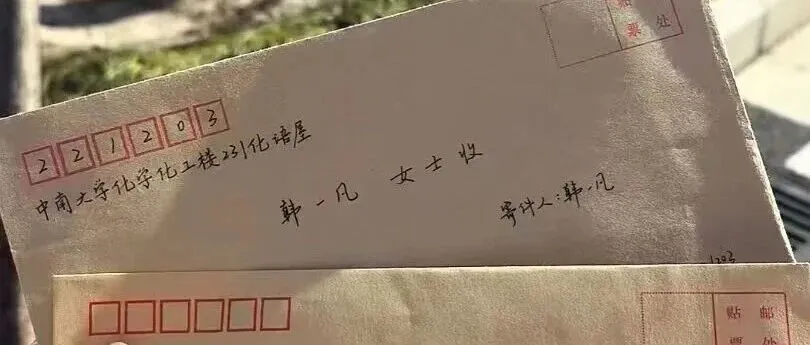 票 处
221203
中南大学化学化工楼231化语屋
韩一凡 女士收
寄件人:韩一凡
1203
贴 邮
票 处